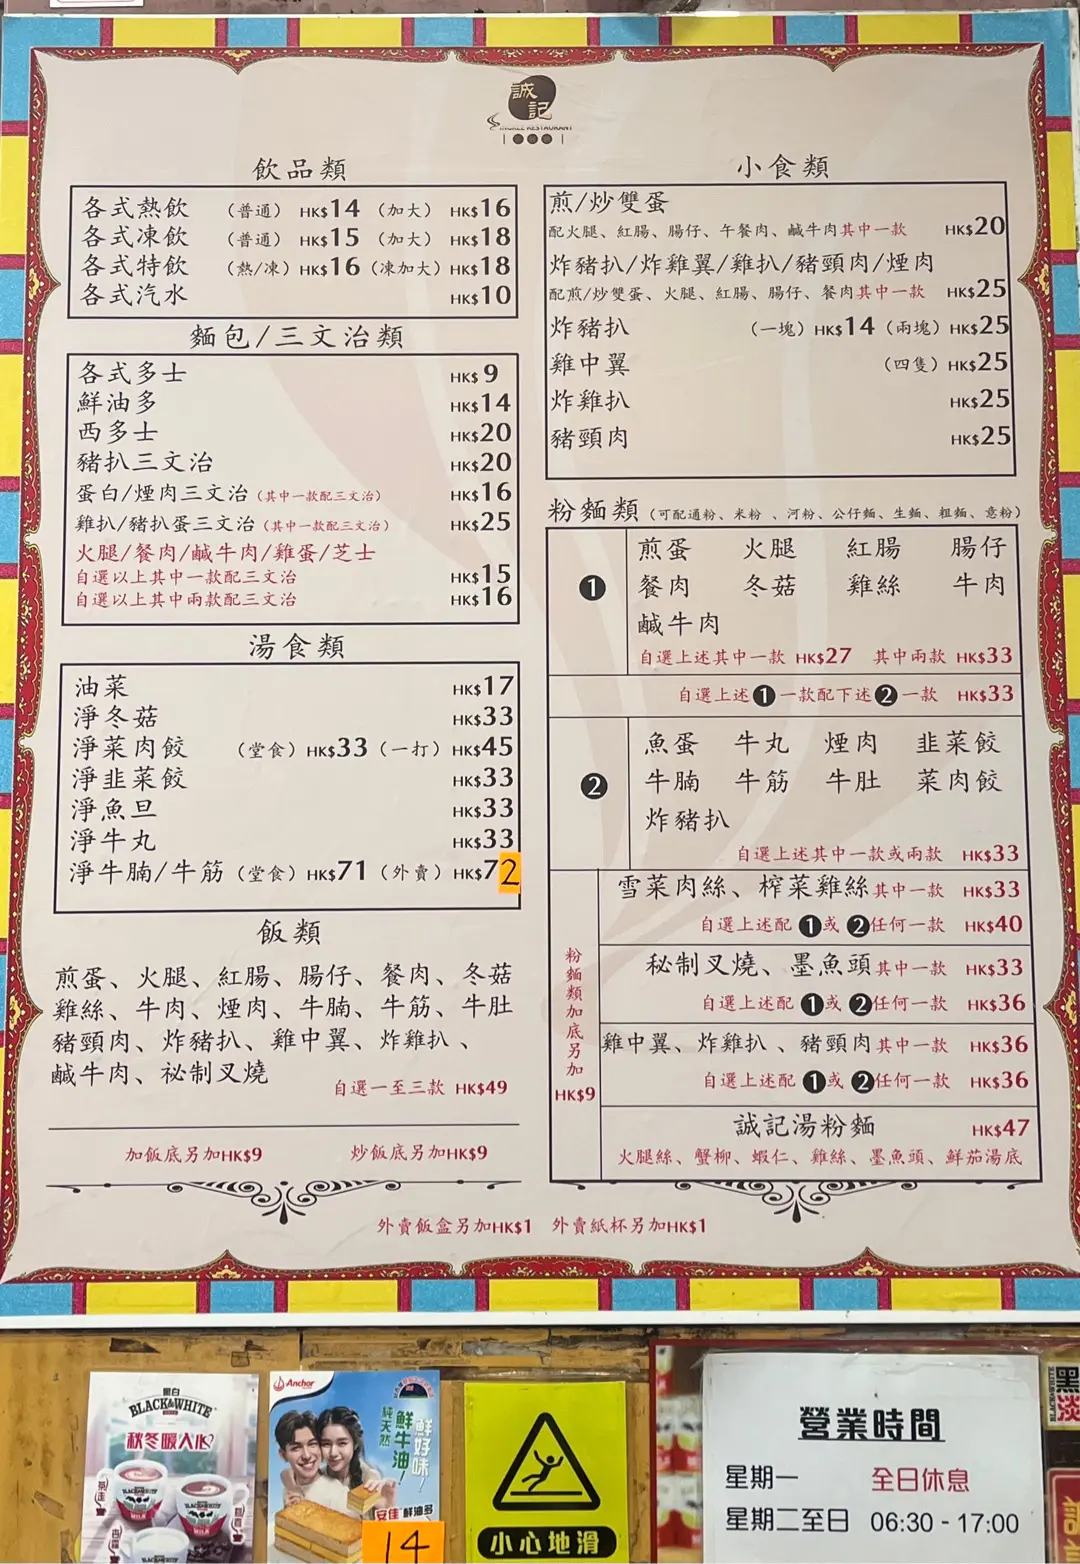 誠
記
SINGKEE RESTAURANT
飲品類
各式熱飲 (普通) HK$14 (加大) HK$16
各式凍飲 (普通) HK$15 (加大) HK$18
各式特飲 (熱/凍) HK$16 (凍加大) HK$18
各式汽水 HK$10
麵包/三文治類
各式多士 HK$ 9
鮮油多 HK$14
西多士 HK$20
豬扒三文治 HK$20
蛋白/煙肉三文治 (其中一款配三文治) HK$16
雞扒/豬扒蛋三文治 (其中一款配三文治) HK$25
火腿/餐肉/鹹牛肉/雞蛋/芝士
自選以上其中一款配三文治 HK$15
自選以上其中兩款配三文治 HK$16
湯食類
油菜 HK$17
淨冬菇 HK$33
淨菜肉餃 (堂食) HK$33 (一打) HK$45
淨韭菜餃 HK$33
淨魚旦 HK$33
淨牛丸 HK$33
淨牛腩/牛筋 (堂食) HK$71 (外賣) HK$72
飯類
煎蛋、火腿、紅腸、腸仔、餐肉、冬菇
雞絲、牛肉、煙肉、牛腩、牛筋、牛肚
豬頸肉、炸豬扒、雞中翼、炸雞扒、
鹹牛肉、祕制叉燒
自選一至三款 HK$49
加飯底另加HK$9 炒飯底另加HK$9
小食類
煎/炒雙蛋
配火腿、紅腸、腸仔、午餐肉、鹹牛肉其中一款 HK$20
炸豬扒/炸雞翼/雞扒/豬頸肉/煙肉
配煎/炒雙蛋、火腿、紅腸、腸仔、餐肉其中一款 HK$25
炸豬扒 (一塊) HK$14 (兩塊) HK$25
雞中翼 (四隻) HK$25
炸雞扒 HK$25
豬頸肉 HK$25
粉麵類 (可配通粉、米粉、河粉、公仔麵、生麵、粗麵、意粉)
1
煎蛋 火腿 紅腸 腸仔
餐肉 冬菇 雞絲 牛肉
鹹牛肉
自選上述其中一款 HK$27 其中兩款 HK$33
自選上述1一款配下述2一款 HK$33
2
魚蛋 牛丸 煙肉 韭菜餃
牛腩 牛筋 牛肚 菜肉餃
炸豬扒
自選上述其中一款或兩款 HK$33
粉麵類加底另加HK$9
雪菜肉絲、榨菜雞絲其中一款 HK$33
自選上述配1或2任何一款 HK$40
秘制叉燒、墨魚頭其中一款 HK$33
自選上述配1或2任何一款 HK$36
雞中翼、炸雞扒、豬頸肉其中一款 HK$36
自選上述配1或2任何一款 HK$36
誠記湯粉麵 HK$47
火腿絲、蟹柳、蝦仁、雞絲、墨魚頭、鮮茄湯底
外賣飯盒另加HK$1 外賣紙杯另加HK$1
黑白
BLACK&WHITE
秋冬暖入心
Anchor
純天然
鮮牛油！
鮮好味！
安佳 鮮油多
14
小心地滑
營業時間
星期一 全日休息
星期二至日 06:30 - 17:00
黑
淡